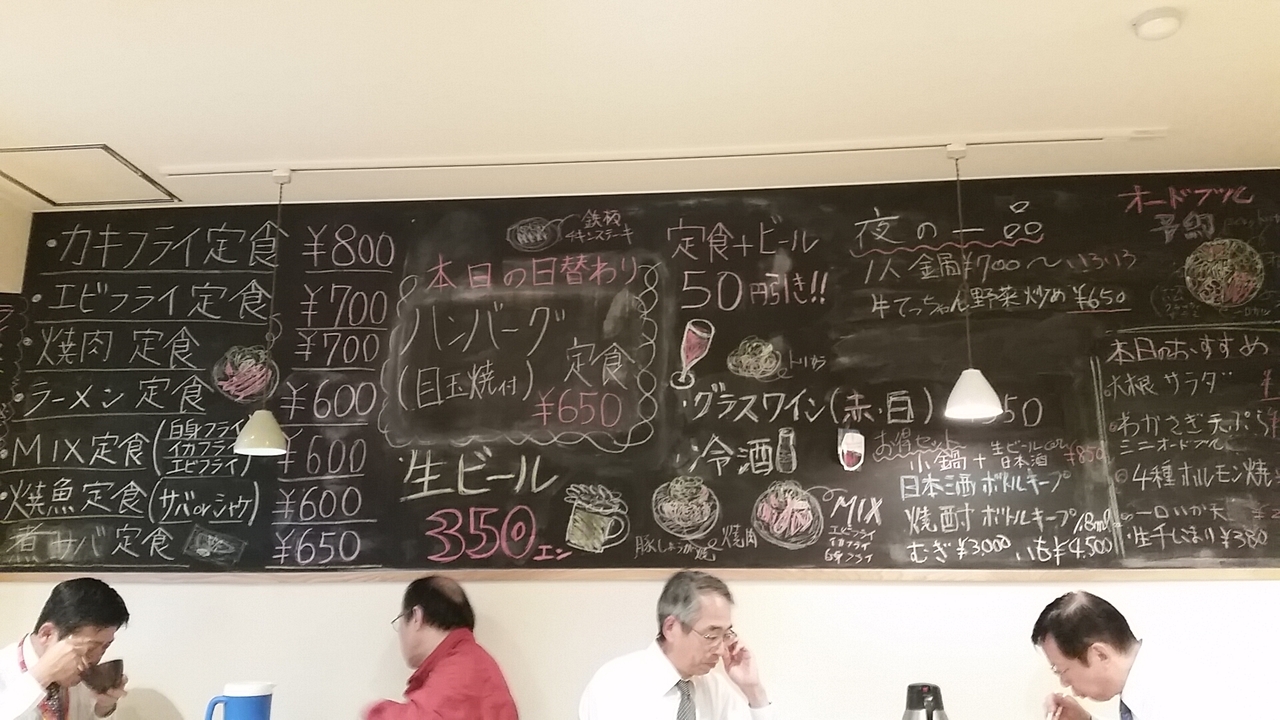 ・カキフライ定食 ¥800
・エビフライ定食 ¥700
・焼肉 定食 ¥700
・ラーメン定食 ¥600
・MIX定食(白身フライ イカフライ エビフライ) ¥600
・焼魚定食(サバorシャケ) ¥600
煮サバ定食 ¥650
鉄板
チキンステーキ
本日の日替わり
ハンバーグ
(目玉焼付) 定食
¥650
生ビール
350エン
定食+ビール
50円引き!!
トリカラ
・グラスワイン(赤・白) 50
・冷酒
豚しょうが焼
焼肉
MIX
エビフライ
イカフライ
白身フライ
夜の一品
1人鍋¥700〜いろいろ
牛てっちゃん野菜炒め ¥650
お得セット
小鍋+生ビールor日本酒 ¥850
日本酒ボトルキープ
焼酎ボトルキープ1.8ml
むぎ¥3,000 いも¥4,500
オードブル
予約
本日のおすすめ
大根サラダ
わかさぎ天ぷら
ミニオードブル
4種ホルモン焼
一口いか天
生千じまり ¥380